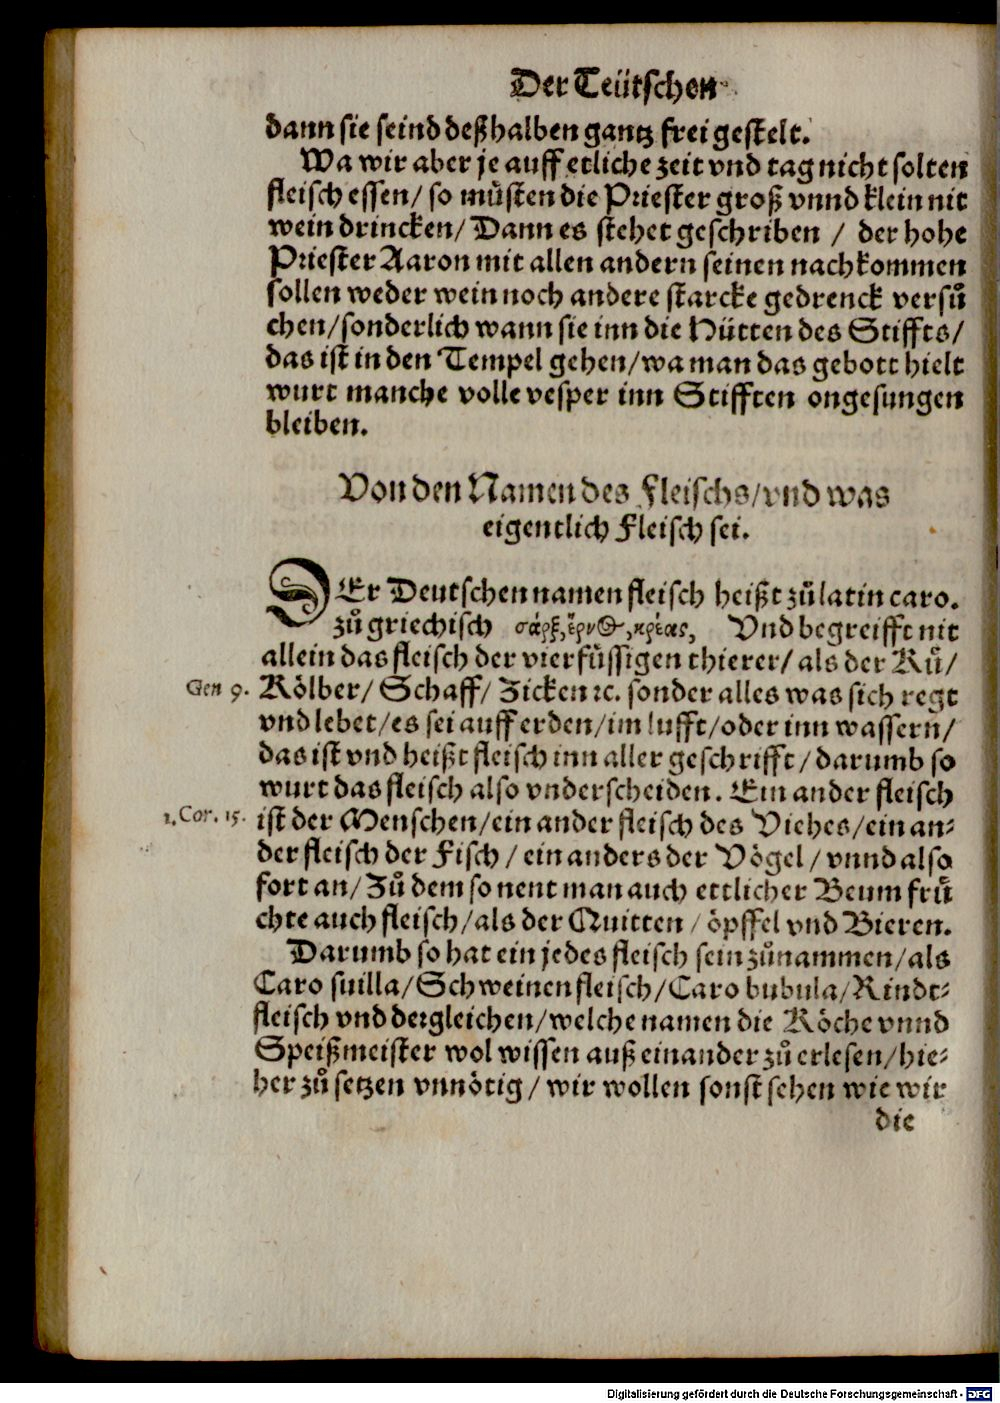 Der Teütschen
dann sie seind deßhalben gantz frei gestelt.
Wa wir aber je auff etliche zeit vnd tag nicht solten
fleisch essen/ so müsten die Priester groß vnnd klein nit
wein drincken/ Dann es stehet geschriben / der hohe
Priester Aaron mit allen andern seinen nachkommen
sollen weder wein noch andere starcke gedrenck versů
chen/ sonderlich wann sie inn die Hütten des Stiffts/
das ist in den Tempel gehen/ wa man das gebott hielt
wurt manche volle vesper inn Stifften ongesungen
bleiben.
Von den Namen des Fleischs/ vnd was
eigentlich Fleisch sei.
DEr Deutschen namen fleisch heißt zů latin caro.
zů griechisch σάρξ, ἔρνος, κρέας, Vnd begreifft nit
allein das fleisch der vierfüssigen thierer/ als der Ků/
Gen 9. Kölber/ Schaff/ Zicken ꝛc. sonder alles was sich regt
vnd lebet/ es sei auff erden/ im lufft/ oder inn wassern/
das ist vnd heißt fleisch inn aller geschrifft/ darumb so
wurt das fleisch also vnderscheiden. Ein ander fleisch
1. Cor. 15. ist der Menschen/ ein ander fleisch des Viehes/ ein an⸗
der fleisch der Fisch / ein anders der Vögel / vnnd also
fort an/ Zů dem so nent man auch ettlicher Beum frü
chte auch fleisch/ als der Quitten / öpffel vnd Bieren.
Darumb so hat ein jedes fleisch sein zůnammen/ als
Caro suilla/ Schweinen fleisch/ Caro bubula/ Rindt⸗
fleisch vnd dergleichen/ welche namen die Köche vnnd
Speißmeister wol wissen auß einander zů erlesen/ hie⸗
her zů setzen vnnötig/ wir wollen sonst sehen wie wir
die
Digitalisierung gefördert durch die Deutsche Forschungsgemeinschaft - DFG